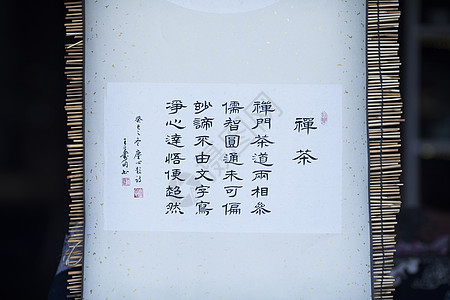 禪茶
禪門茶道兩相參
儒智圓通未可偏
妙諦不由文字寫
淨心達悟便超然